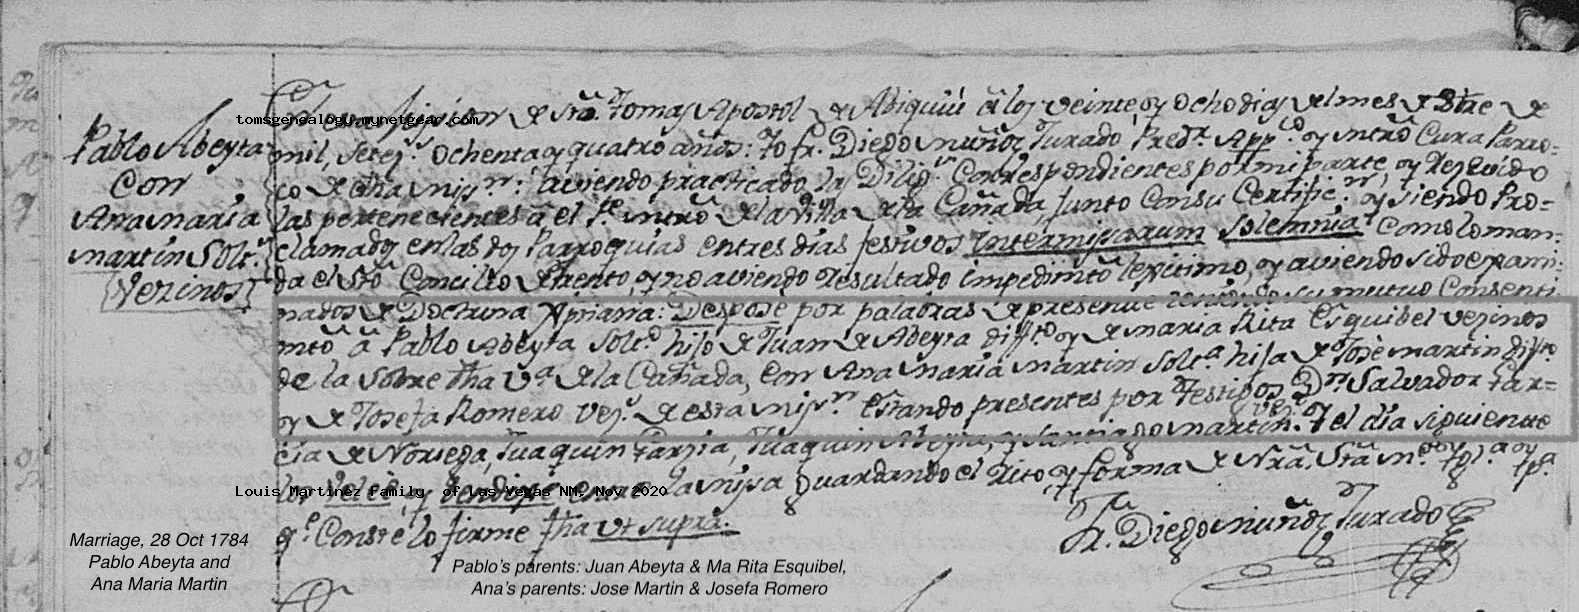 Pablo Abeyta
Con
Ana maria
martin Solt.ˢ
Vezinos
En esta mision de Sta. Tomas Apostol de Abiquiú â los veinte, y ocho dias del mes de de
tomsgenealogy.mynetgear.com
mil, setez.ˢ ochenta y quatro años: Yo fr. Diego muñoz Jurado, Pred.ʳ App.ᶜᵒ y mtrô Cura Parro=
co de dha mis.ⁿ: aviendo practicado las Dilig.ˢ Correspondientes por mi parte, y rezevido
las pertenecientes â el Pe. mtrô de la Villa de la Cañada, junto con su Certific.ⁿ, y siendo Pro=
clamados en las dos Parroquias en tres dias festivos intermisarum solemnia Como lo man=
da el Stô Concilio de trento, y no aviendo resultado impedimtô lexitimo, y aviendo sido exami=
nados de Doctrina Xptiana: Despose por palabras de presente su mutuo Consenti
mtô â Pablo Abeyta solt.º hijo de Juan de Abeyta difftº y de maria Rita Esquibel vezinos
de la sobre dha V.ᵃ de la Cañada, con Ana maria martin solt.ᵃ hija de Jose martin diffto
y de Josefa Romero vez.ˢ de esta mis.ⁿ. Estando presentes por testigos Dⁿ Salvador Gar=
vez.ˢ
cia de Noriega, Juaquin Garzia, Juaquin Abeyta, y Santiago martin. Y el dia siguiente
los velê, y bendixe en la misa guardando el rito, y forma de Nrâ. Stâ m.ᵉ Ygl.ᵃ y pᵃ
Louis Martinez Family of Las Vegas NM, Nov 2020
q.ᵉ Conste lo firme fha ut supra.
Fr. Diego muñoz Jurado
Marriage, 28 Oct 1784
Pablo Abeyta and
Ana Maria Martin
Pablo's parents: Juan Abeyta & Ma Rita Esquibel,
Ana's parents: Jose Martin & Josefa Romero